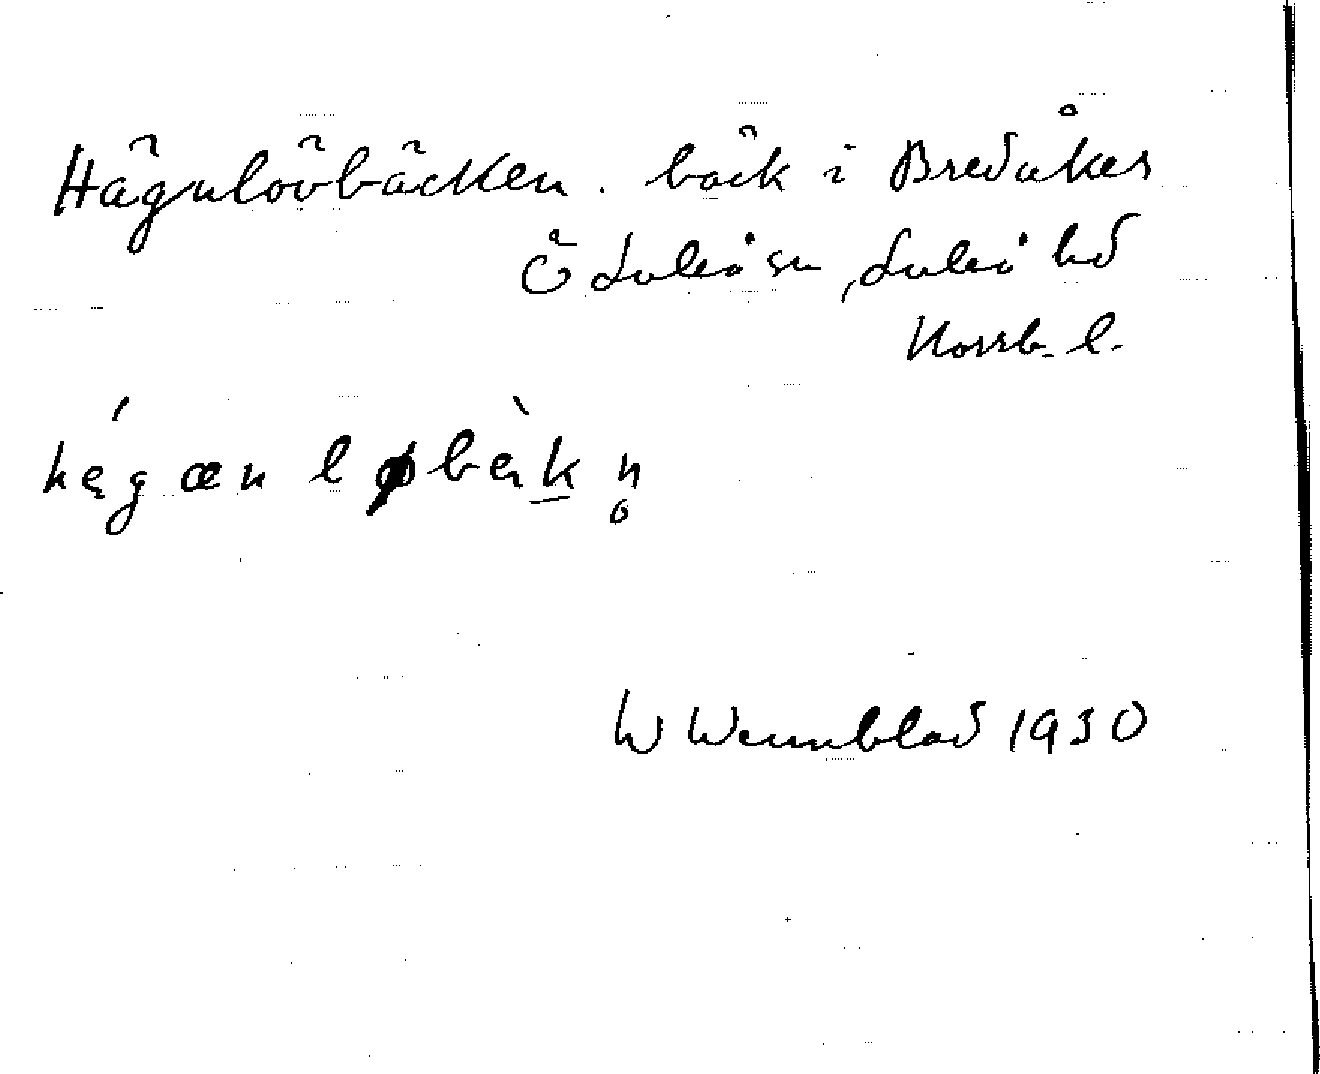 Hägnlövbäcken. bäck i Bredåker
Ö Luleå sn, Luleå hd
Norrb. l.
W Wennblad 1930